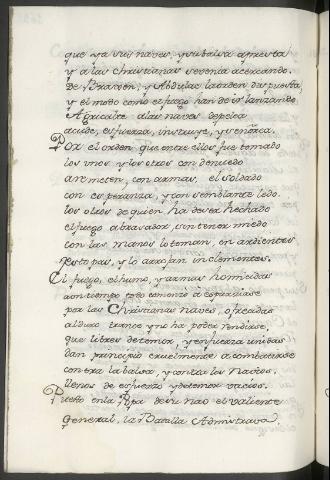 que ya sus naves, y subalsa apresta
y a las Christianas sevenia acercando.
De Brazoen, y Abdulas la orden dispuesta
y el modo como el fuego han de ir lanzando
A las naves de pelea
acude, esfuerza, instruye, y señorea.
Por el orden que entre ellos fue tomado
los unos y los otros con denuedo
aremeten, con armas el soldado
con esperanza, y con semblante ledo.
los otros de quien ha de ser hechado
el fuego abrasador, sin tener miedo
con las manos lo toman, en ardientes
y lo arrojan inclementes.
El fuego, el humo, y armas homicidas
a un tiempo comenzó a esparziarse
por las Christianas naves, ofrecidas
al duro trance y no ha poder rendirse,
que libres de temor, y en fuerza unidas
dan principio cruelmente a combatirse
contra la balsa, y contra los Navios.
llenos de esfuerzo y de temor vacios.
Puesto en la Popa de su nao el valiente
General, la Batalla Administrava.